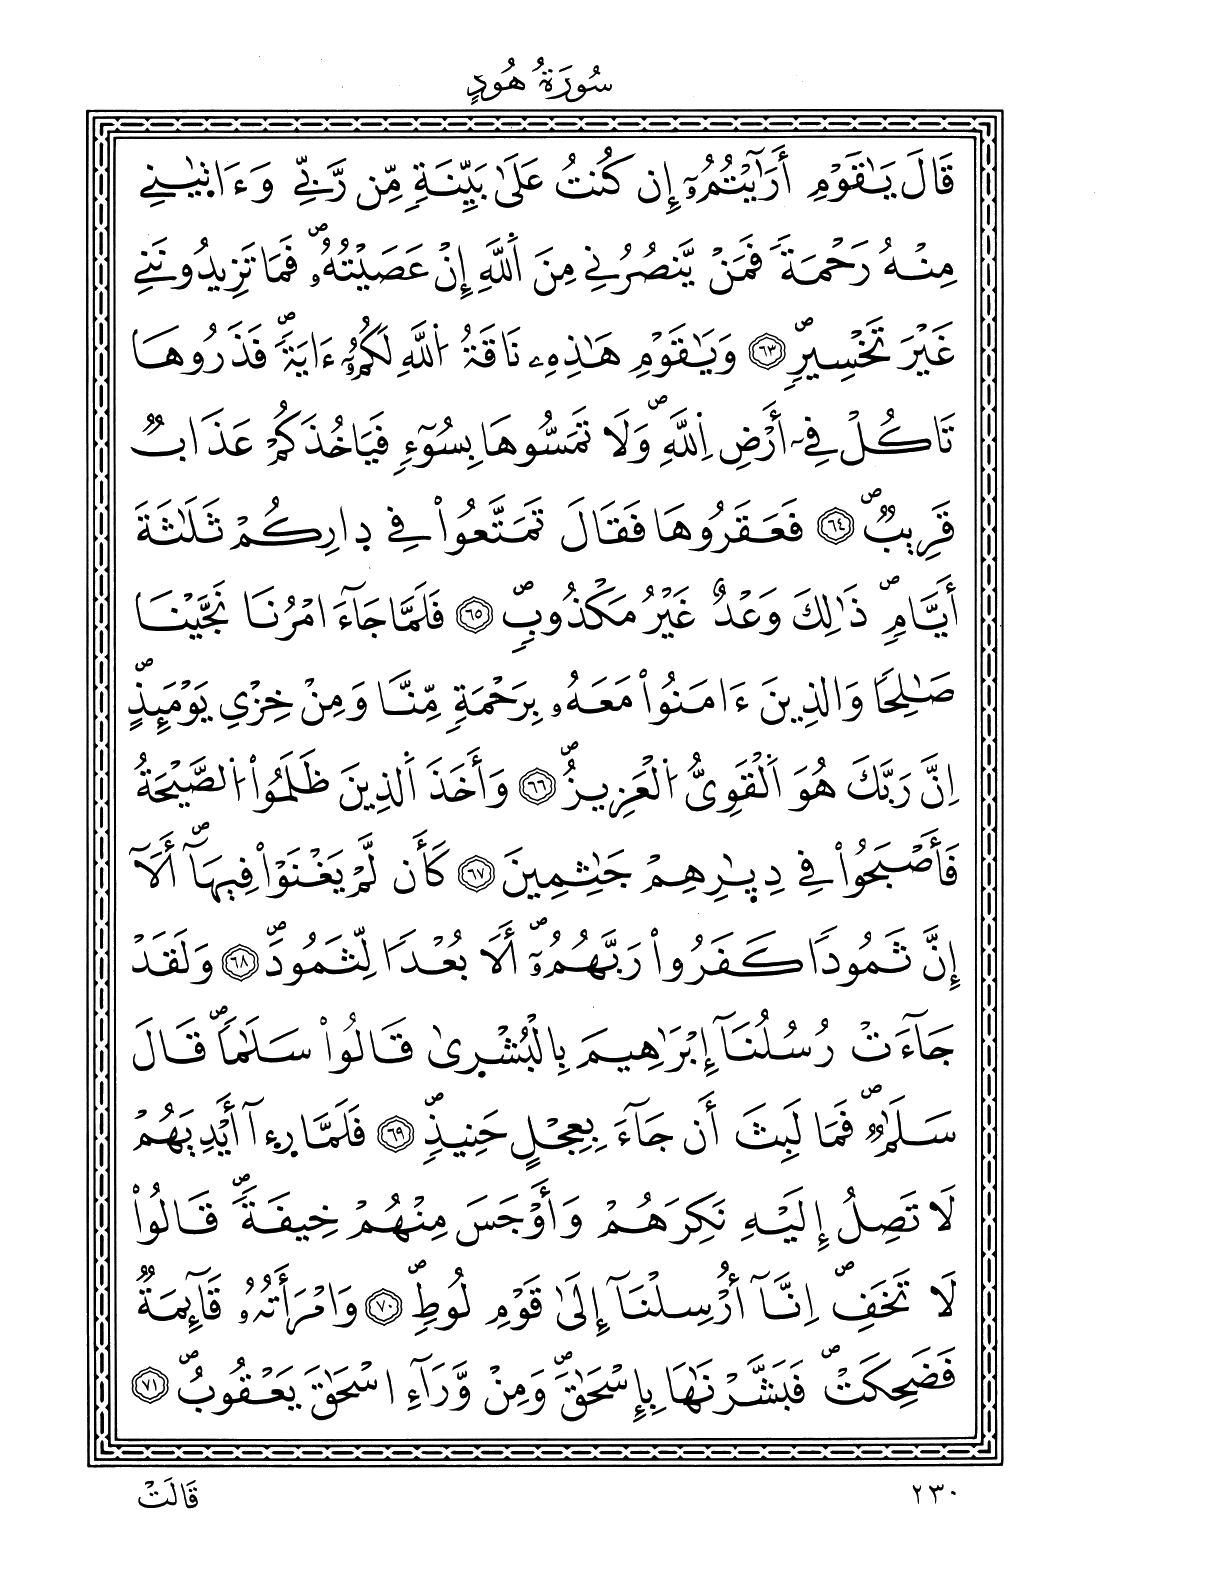 سُورَةُ هُودٍ
قَالَ يَٰقَوْمِ أَرَآيْتُمُۥٓ إِن كُنتُ عَلَىٰ بَيِّنَةٖ مِّن رَّبِّي وَءَاتٜىٰنِے
مِنْهُ رَحْمَةٗ فَمَنْ يَّنصُرُنِے مِنَ اَ۬للَّهِ إِنْ عَصَيْتُهُۥۖ فَمَا تَزِيدُونَنِے
غَيْرَ تَخْسِيرٖۖ ٦٣ وَيَٰقَوْمِ هَٰذِهِۦ نَاقَةُ اُ۬للَّهِ لَكُمُۥٓ ءَايَةٗۖ فَذَرُوهَا
تَاكُلْ فِےٓ أَرْضِ اِ۬للَّهِۖ وَلَا تَمَسُّوهَا بِسُوٓءٖ فَيَاخُذَكُمْ عَذَابٞ
قَرِيبٞۖ ٦٤ فَعَقَرُوهَا فَقَالَ تَمَتَّعُواْ فِے دٜارِكُمْ ثَلَٰثَةَ
أَيَّامٖۖ ذَٰلِكَ وَعْدٌ غَيْرُ مَكْذُوبٖۖ ٦٥ فَلَمَّا جَآءَ امْرُنَا نَجَّيْنَا
صَٰلِحٗا وَالذِينَ ءَامَنُواْ مَعَهُۥ بِرَحْمَةٖ مِّنَّا وَمِنْ خِزْيِ يَوْمَئِذٍۖ
اِنَّ رَبَّكَ هُوَ اَ۬لْقَوِيُّ اُ۬لْعَزِيزُۖ ٦٦ وَأَخَذَ اَ۬لذِينَ ظَلَمُواْ اُ۬لصَّيْحَةُ
فَأَصْبَحُواْ فِے دِيٰٜرِهِمْ جَٰثِمِينَ ٦٧ كَأَن لَّمْ يَغْنَوْاْ فِيهَآۖ أَلَآ
إِنَّ ثَمُوداٗ كَفَرُواْ رَبَّهُمُۥٓۖ أَلَا بُعْداٗ لِّثَمُودَۖ ٦٨ وَلَقَدْ
جَآءَتْ رُسُلُنَآ إِبْرَٰهِيمَ بِالْبُشْرٜىٰ قَالُواْ سَلَٰماٗۖ قَالَ
سَلَٰمٞۖ فَمَا لَبِثَ أَن جَآءَ بِعِجْلٍ حَنِيذٖۖ ٦٩ فَلَمَّا رٜءٜآ أَيْدِيَهُمْ
لَا تَصِلُ إِلَيْهِ نَكِرَهُمْ وَأَوْجَسَ مِنْهُمْ خِيفَةٗۖ قَالُواْ
لَا تَخَفِۖ اِنَّآ أُرْسِلْنَآ إِلَىٰ قَوْمِ لُوطٖۖ ٧٠ وَامْرَأَتُهُۥ قَآئِمَةٞ
فَضَحِكَتْۖ فَبَشَّرْنَٰهَا بِإِسْحَٰقَۖ وَمِنْ وَّرَآءِ اسْحَٰقَ يَعْقُوبُۖ ٧١
٢٣٠ قَالَتْ